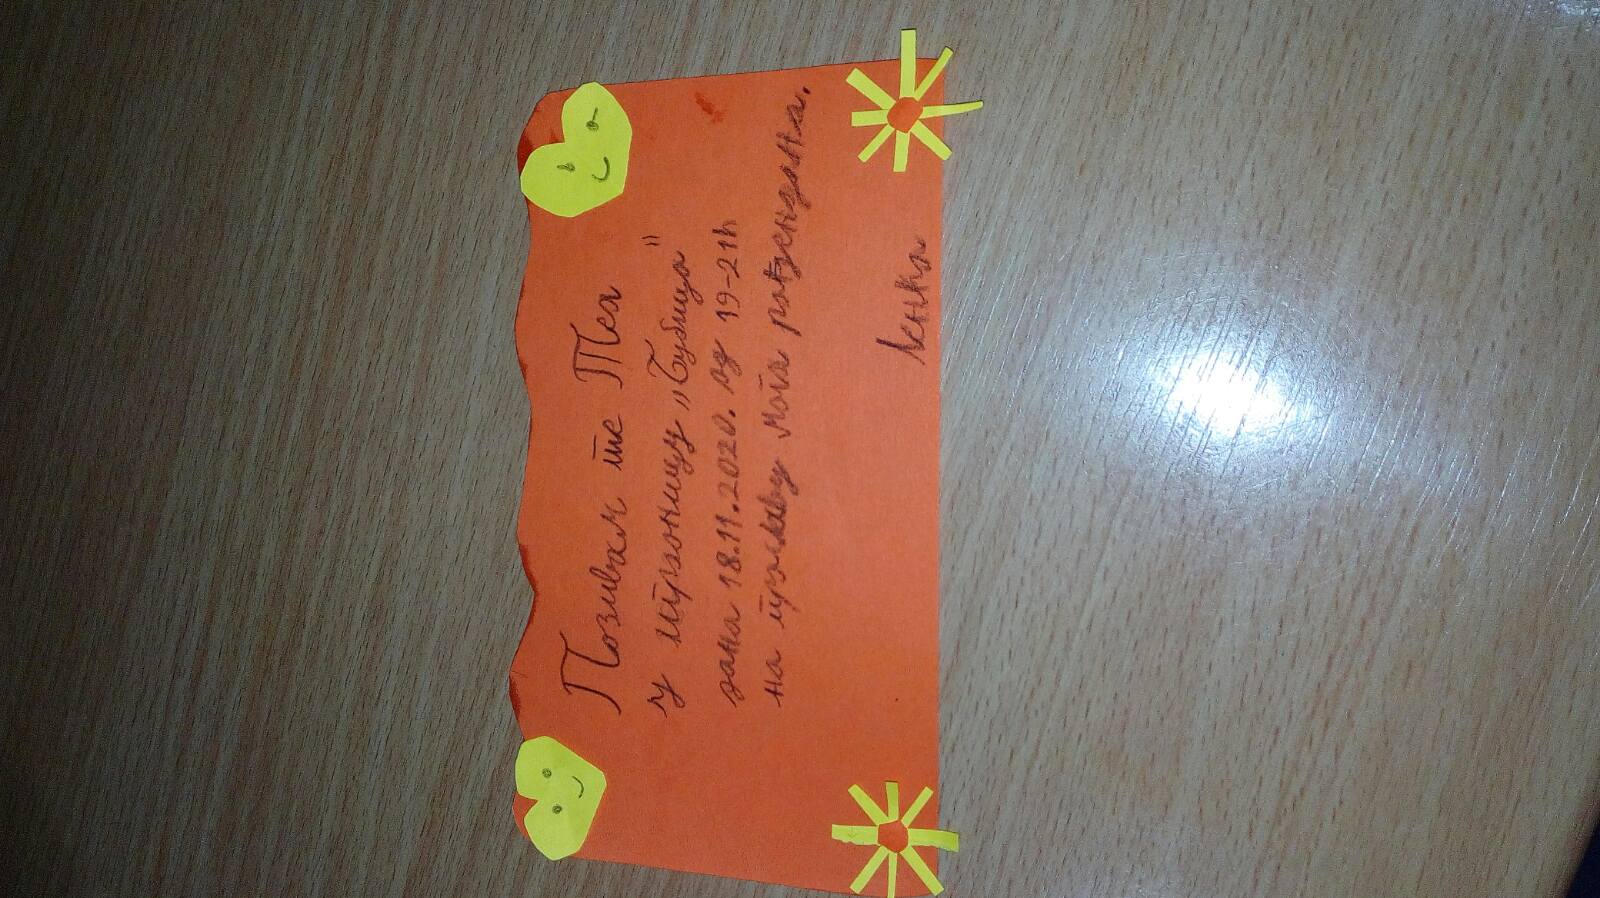 Позивам те Теа
у играоницу „Бубица"
дана 18.11.2020. од 19-21h
на прославу мога рођендана.
Ленка